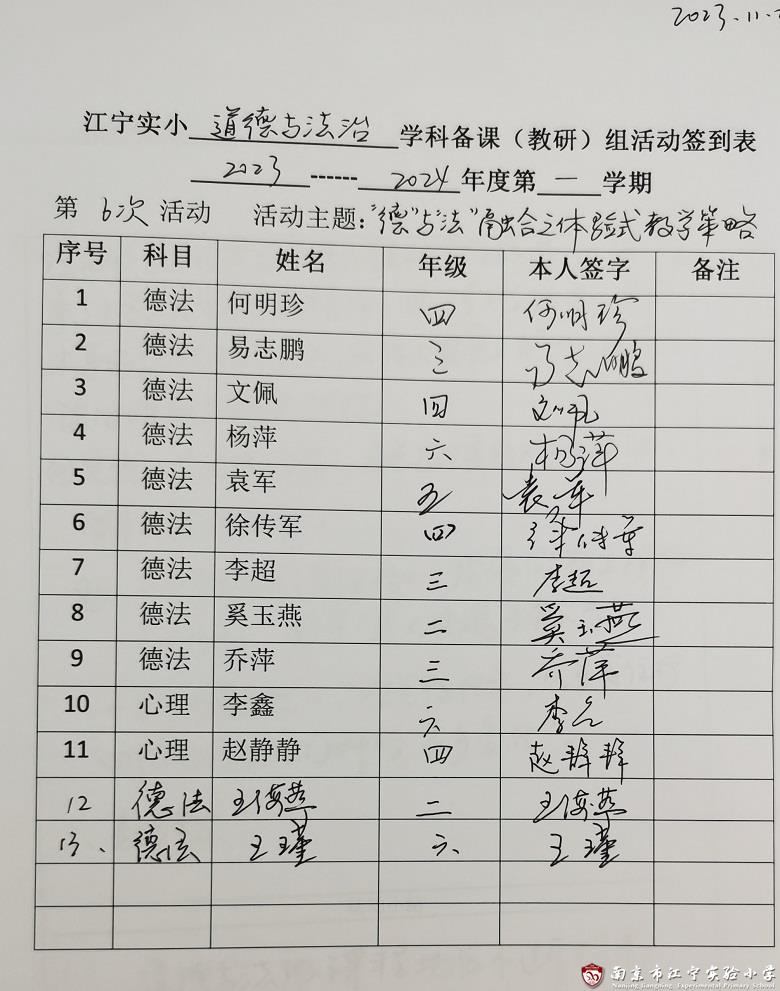 2023.11.
江宁实小 道德与法治 学科备课（教研）组活动签到表
2023 ------ 2024 年度第 一 学期
第 6次 活动 活动主题：“德”与“法”融合立体验式教学策略
序号 科目 姓名 年级 本人签字 备注
1 德法 何明珍 四 何明珍
2 德法 易志鹏 三 易志鹏
3 德法 文佩 四 文佩
4 德法 杨萍 六 杨萍
5 德法 袁军 五 袁军
6 德法 徐传军 四 徐传军
7 德法 李超 三 李超
8 德法 奚玉燕 二 奚玉燕
9 德法 乔萍 三 乔萍
10 心理 李鑫 六 李鑫
11 心理 赵静静 四 赵静静
12 德法 王海燕 二 王海燕
13、 德法 王瑾 六、 王瑾
南京市江宁实验小学
Nanjing Jiangning Experimental Primary School